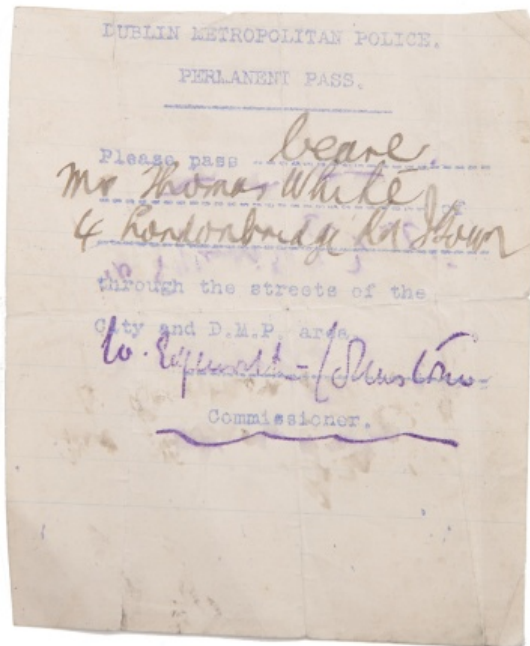 DUBLIN METROPOLITAN POLICE.
PERMANENT PASS.
Please pass beare
Mr Thomas White of
4 Londonbridge Rd
through the streets of the
City and D.M.P. area.
W. Edgeworth-Johnstone
Commissioner.